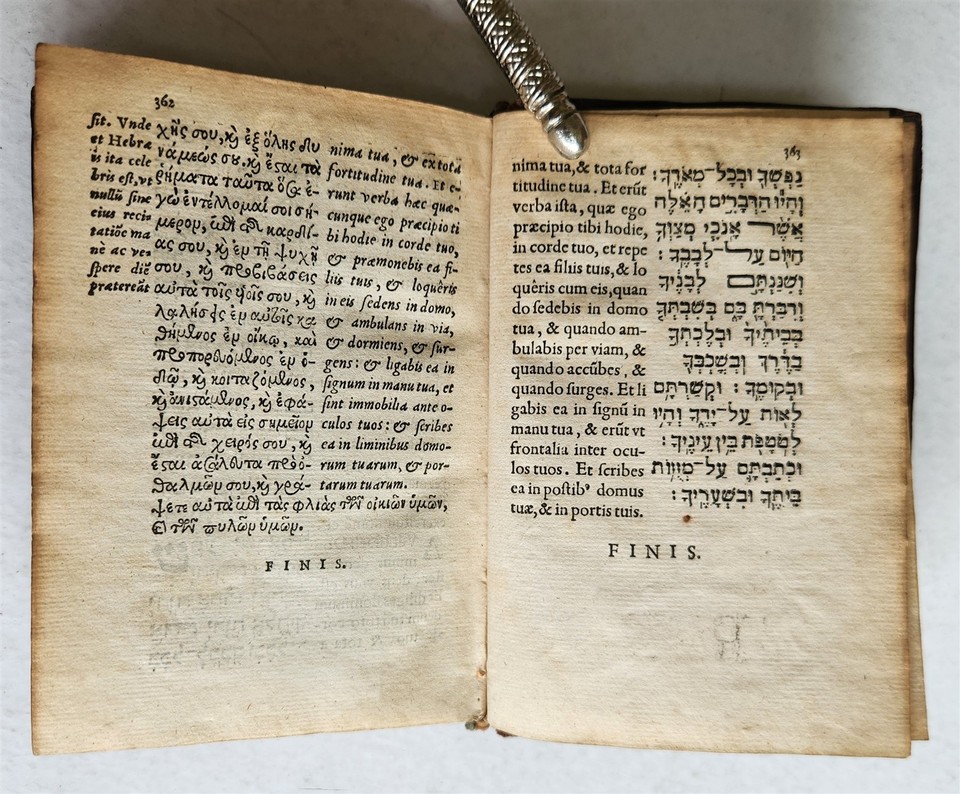 362
sit. Vnde
et Hebræ
is ita cele
bris est, vt
nullũ sine
eius reci-
tatiõe ma
nè ac ves
spere diẽ
prætereãt
χῆς σου, ϗ ἐξ ὅλης δυ
νάμεώς σου. ϗ ἔσται τὰ
ῥήματα ταῦτα ὅσα ἐ-
γὼ ἐντέλλομαί σοι σή-
μερον, ἐπὶ τῆς καρδί-
ας σου, ϗ ἐν τῇ ψυχῇ
σου, ϗ προβιβάσεις
αὐτὰ τοῖς υἱοῖς σου, ϗ
λαλήσεις ἐν αὐτοῖς κα
θήμενος ἐν οἴκῳ, καὶ
προπορευόμενος ἐν ὁ-
δῷ, ϗ κοιταζόμενος,
ϗ ἀνιστάμενος, ϗ ἐφά-
ψεις αὐτὰ εἰς σημεῖον
ἐπὶ τῆς χειρός σου, ϗ
ἔσται ἀσάλευτα πρὸ ὀφ-
θαλμῶν σου, ϗ γρά-
ψετε αὐτὰ ἐπὶ τὰς φλιὰς τῶν οἰκιῶν ὑμῶν,
ϗ τῶν πυλῶν ὑμῶν.
nima tua, & ex tota
fortitudine tua. Et e-
runt verba hæc quæ-
cunque ego præcipio ti
bi hodie in corde tuo,
& præmonebis ea fi-
liis tuis, & loquêris
in eis sedens in domo,
& ambulans in via,
& dormiens, & sur-
gens: & ligabis ea in
signum in manu tua, et
sint immobilia ante o-
culos tuos: & scribes
ea in liminibus domo-
rum tuarum, & por-
tarum tuarum.
FINIS.
363
nima tua, & tota for
titudine tua. Et erũt
verba ista, quæ ego
præcipio tibi hodie,
in corde tuo, et repe
tes ea filiis tuis, & lo
quêris cum eis, quan
do sedebis in domo
tua, & quando am-
bulabis per viam, &
quando accũbes, &
quando surges. Et li
gabis ea in signũ in
manu tua, & erũt vt
frontalia inter ocu-
los tuos. Et scribes
ea in postibꝰ domus
tuæ, & in portis tuis.
נַפְשְׁךָ וּבְכָל־מְאֹדֶךָ׃
וְהָיוּ הַדְּבָרִים הָאֵלֶּה
אֲשֶׁר אָנֹכִי מְצַוְּךָ
הַיּוֹם עַל־לְבָבֶךָ׃
וְשִׁנַּנְתָּם לְבָנֶיךָ
וְדִבַּרְתָּ בָּם בְּשִׁבְתְּךָ
בְּבֵיתֶיךָ וּבְלֶכְתְּךָ
בַדֶּרֶךְ וּבְשָׁכְבְּךָ
וּבְקוּמֶךָ׃ וּקְשַׁרְתָּם
לְאוֹת עַל־יָדֶךָ וְהָיוּ
לְטֹטָפֹת בֵּין עֵינֶיךָ׃
וּכְתַבְתָּם עַל־מְזֻזוֹת
בֵּיתֶךָ וּבִשְׁעָרֶיךָ׃
FINIS.